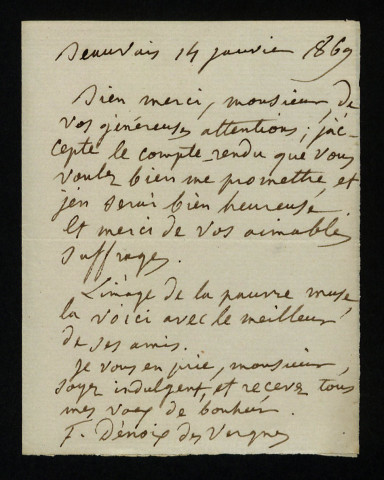 Beauvais 14 janvier 1869
Bien merci, monsieur, de
vos généreuses attentions; j'ac-
cepte le compte-rendu que vous
voulez bien me promettre et
j'en serai bien heureuse.
Et merci de vos aimables
suffrages.
L'image de la pauvre muse,
la voici avec le meilleur
de ses amis.
Je vous en prie, monsieur,
soyez indulgent, et recevez tous
mes voex de bonheur.
F. Dénoix des Vergnes